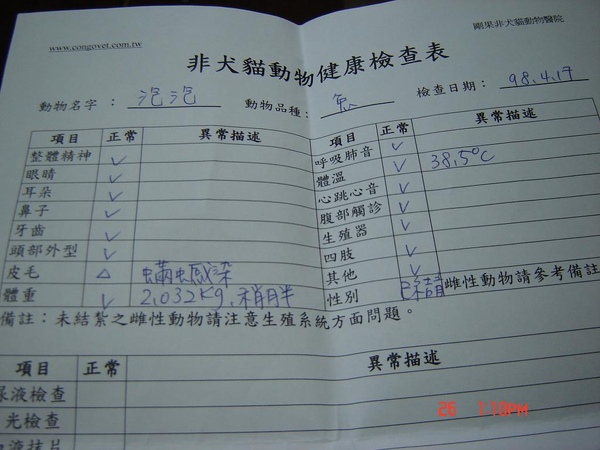 www.congovet.com.tw
剛果非犬貓動物醫院
非犬貓動物健康檢查表
動物名字： 泡泡 動物品種： 兔 檢查日期： 98.4.17
項目 正常 異常描述
整體精神 ✓
眼睛 ✓
耳朵 ✓
鼻子 ✓
牙齒 ✓
頭部外型 ✓
皮毛 △ 蟎蟲感染
體重 ✓ 2.032kg. 稍胖
項目 正常 異常描述
呼吸肺音 ✓
體溫 38.5°C
心跳心音 ✓
腹部觸診 ✓
生殖器 ✓
四肢 ✓
其他 ✓
性別 雌性動物請參考備註
備註：未結紮之雌性動物請注意生殖系統方面問題。
項目 正常 異常描述
尿液檢查
光檢查
液抹片
26 1:10PM